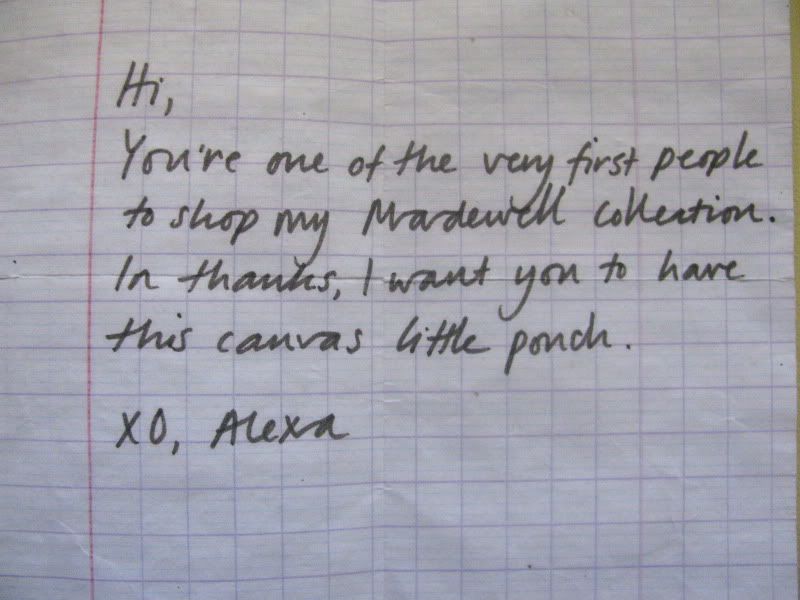 Hi,
You're one of the very first people
to shop my Madewell Collection.
In thanks, I want you to have
this canvas little pouch.
XO, Alexa